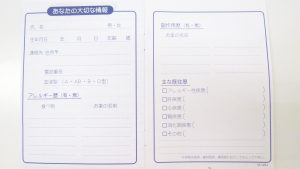 あなたの大切な情報
氏名
男・女
生年月日 年 月 日 年齢 歳
連絡先 住所〒
電話番号
血液型（A・AB・B・O型）
アレルギー歴（有・無）
食べ物
お薬の名前
副作用歴（有・無）
お薬の名前
主な既往歴
□アレルギー性疾患（ ）
□肝疾患（ ）
□心疾患（ ）
□腎疾患（ ）
□消化器疾患（ ）
□その他（ ）